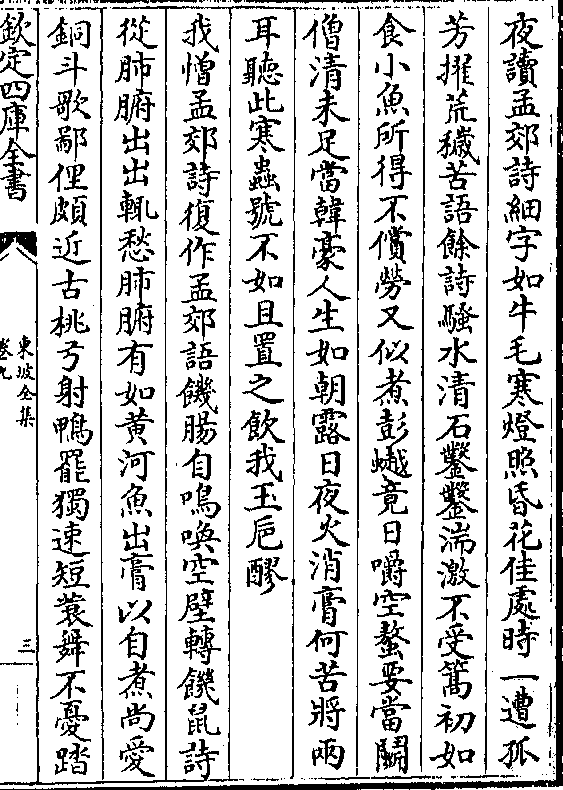 夜讀孟郊詩細字如牛毛寒燈照昏花佳處時一遭孤
芳擢荒穢苦語餘詩騷水清石鑿鑿湍激不受篙初如
食小魚所得不償勞又似煮彭𧑅竟日嚼空螯要當鬭
僧清未足當韓豪人生如朝露日夜火消膏何苦將兩
耳聽此寒蟲號不如且置之飲我玉巵醪
我憎孟郊詩復作孟郊語饑腸自鳴喚空壁轉饑鼠詩
從肺腑出出輒愁肺腑有如黄河魚出膏以自煮尚愛
銅斗歌鄙俚頗近古桃弓射鴨罷獨速短蓑舞不憂踏
欽定四庫全書
東坡全集
卷九
三